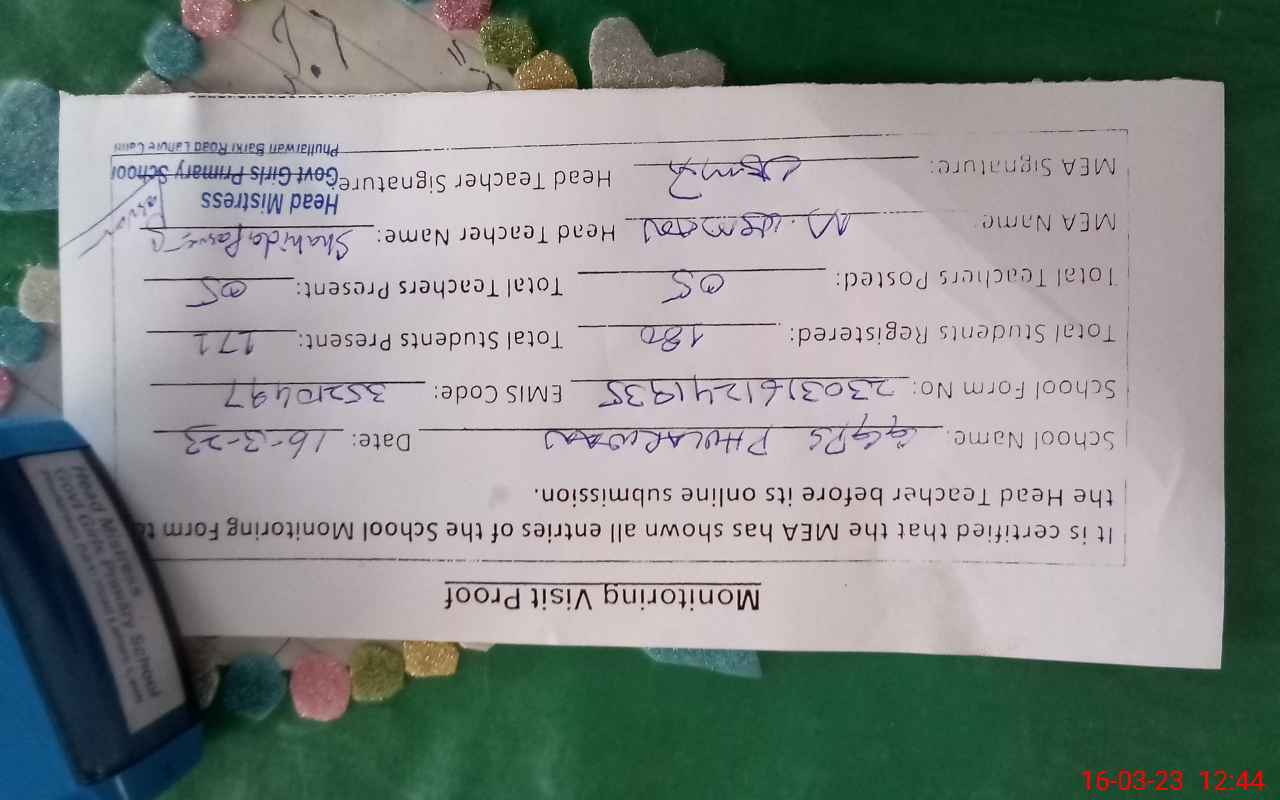 Monitoring Visit Proof
It is certified that the MEA has shown all entries of the School Monitoring Form to
the Head Teacher before its online submission.
School Name. GGPS PHULARWAN Date: 16-3-23
School Form No: 2303161241935 EMIS Code: 35210497
Total Students Registered: 180 Total Students Present: 171
Total Teachers Posted: 05 Total Teachers Present: 05
MEA Name M. Usman Head Teacher Name: Shahida Parveen
MEA Signature: Head Teacher Signature
Head Mistress
Govt Girls Primary School
Phullarwan Barki Road Lahore Cantt
Head Mistress
Govt Girls Primary School
16-03-23 12:44